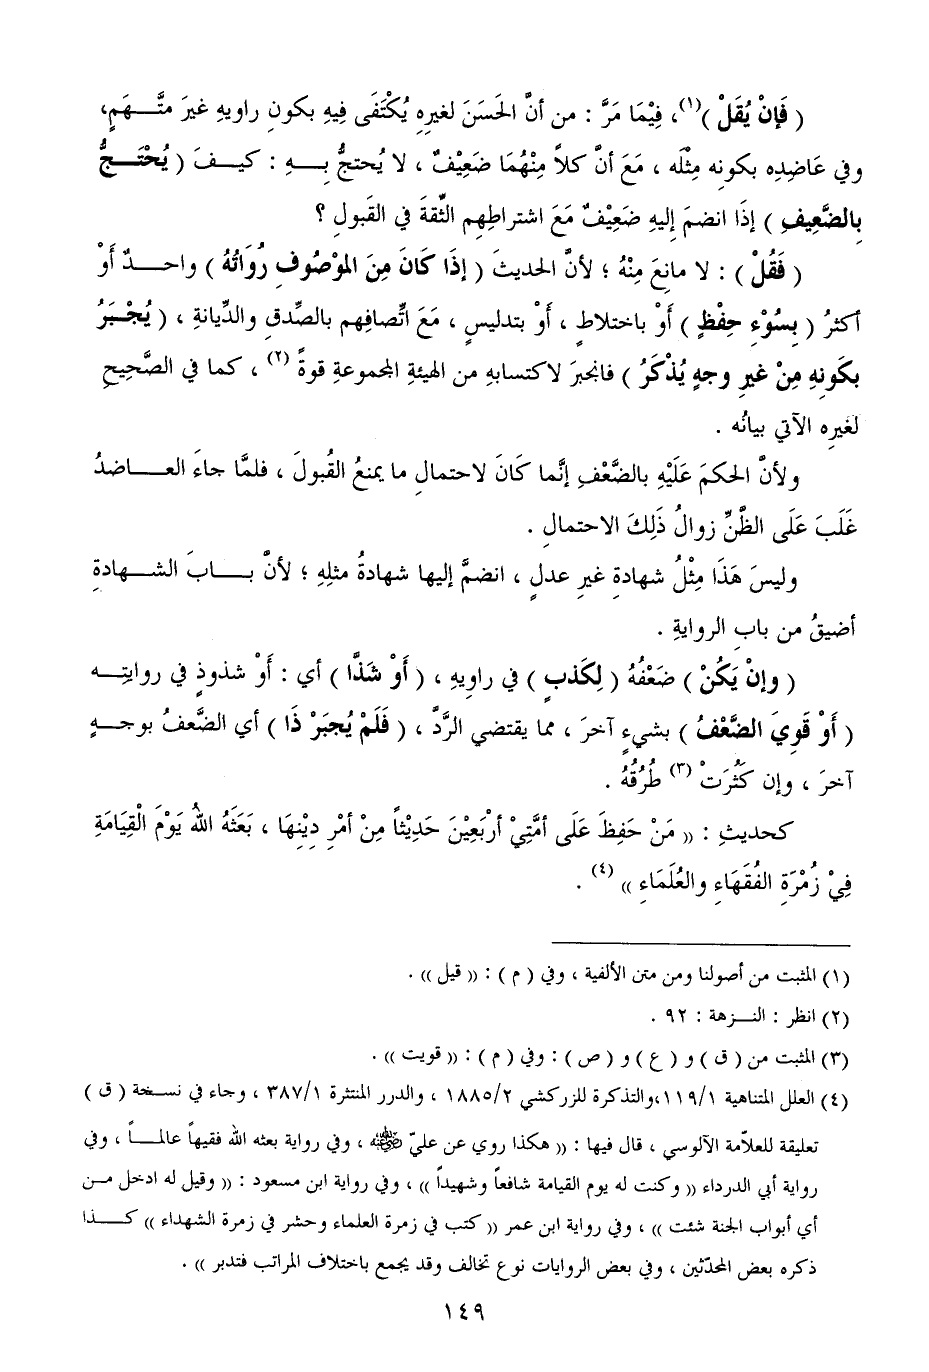 ( فَإِنْ يُقَلْ )(١)، فِيْمَا مَرَّ : من أنَّ الحَسَنَ لغيرِه يُكْتَفَى فِيهِ بكونِ راويهِ غيرَ متَّـــهَمٍ،
وفي عَاضِدِه بكونه مِثْلَه ، مَعَ أنَّ كلاً مِنْهُمَا ضَعِيْفٌ ، لا يُحتجُّ بِـــهِ : كيــفَ ( يُحْتَـــجُّ
بالضَّعِيفِ ) إذَا انضمَ إليهِ ضَعِيْفٌ مَعَ اشتراطِهِم الثِّقةَ في القَبولِ ؟
( فَقُلْ ) : لا مانِعَ مِنْهُ ؛ لأنَّ الحديثَ ( إذَا كَانَ مِنَ المَوْصُوفِ رُوَاتُهُ ) واحـــدٌ أَوْ
أكثرُ ( بِسُوْءِ حِفْظٍ ) أَوْ باختلاطٍ ، أَوْ بتدليسٍ ، مَعَ اتِّصافِهم بالصِّدقِ والدِّيانةِ ، ( يُجْبَرُ
بكَونِهِ مِنْ غيرِ وجهٍ يُذْكَرُ ) فانجبرَ لاكتسابهِ من الهيئةِ المجموعةِ قوةً (٢) ، كما في الصَّحِيحِ
لغيرِه الآتي بيانُه .
ولأنَّ الحكمَ عَلَيْهِ بالضَّعْفِ إنَّما كَانَ لاحتمالِ ما يمنعُ القُبولَ ، فلمَّا جاءَ العـــاضدُ
غَلَبَ عَلَى الظَّنِّ زوالُ ذَلِكَ الاحتمالِ .
وليسَ هَذَا مِثْلُ شهادةِ غيرِ عدلٍ ، انضمَّ إليها شهادةُ مثلِهِ ؛ لأنَّ بـــابَ الشــهادةِ
أضيقُ من بابِ الروايةِ .
( وإنْ يَكُنْ ) ضَعْفُهُ ( لِكَذبٍ ) في راويهِ ، ( أَوْ شَذَّا ) أي : أَوْ شذوذٍ في روايتِـــه
( أَوْ قَوِيَ الضَّعْفُ ) بشيءٍ آخرَ ، مما يقتضي الرَّدَّ ، ( فَلَمْ يُجبَرْ ذَا ) أي الضَّعفُ بوجــهٍ
آخرَ ، وإن كَثُرَتْ (٣) طُرُقُهُ .
كحديثِ : (( مَنْ حَفِظَ عَلَى أمَّتِيْ أربَعِيْنَ حَدِيْثاً مِنْ أمْرِ دِيْنِهَا ، بَعَثَهُ اللهُ يَوْمَ الْقِيَامَةِ
فِيْ زُمْرَةِ الفُقَهَاءِ والعُلَمَاءِ )) (٤) .
(١) المثبت من أصولنا ومن متن الألفية ، وفي ( م ) : (( قيل )) .
(٢) انظر : النــزهة : ٩٢ .
(٣) المثبت من ( ق ) و ( ع ) و ( ص ) : وفي ( م ) : (( قويت )) .
(٤) العلل المتناهية ١١٩/١ ،والتذكرة للزركشي ١٨٨٥/٢ ، والدرر المنتثرة ٣٨٧/١ ، وجاء في نسـخة ( ق )
تعليقة للعلاّمة الآلوسي ، قال فيها : (( هكذا روي عن عليّ رضي الله عنه ، وفي رواية بعثه الله فقيهاً عالمــاً ، وفي
رواية أبي الدرداء (( وكنت له يوم القيامة شافعاً وشهيداً )) ، وفي رواية ابن مسعود : (( وقيل له ادخل مــن
أي أبواب الجنة شئت )) ، وفي رواية ابن عمر (( كتب في زمرة العلماء وحشر في زمرة الشهداء )) كـــذا
ذكره بعض المحدّثين ، وفي بعض الروايات نوع تخالف وقد يجمع باختلاف المراتب فتدبر )) .
١٤٩